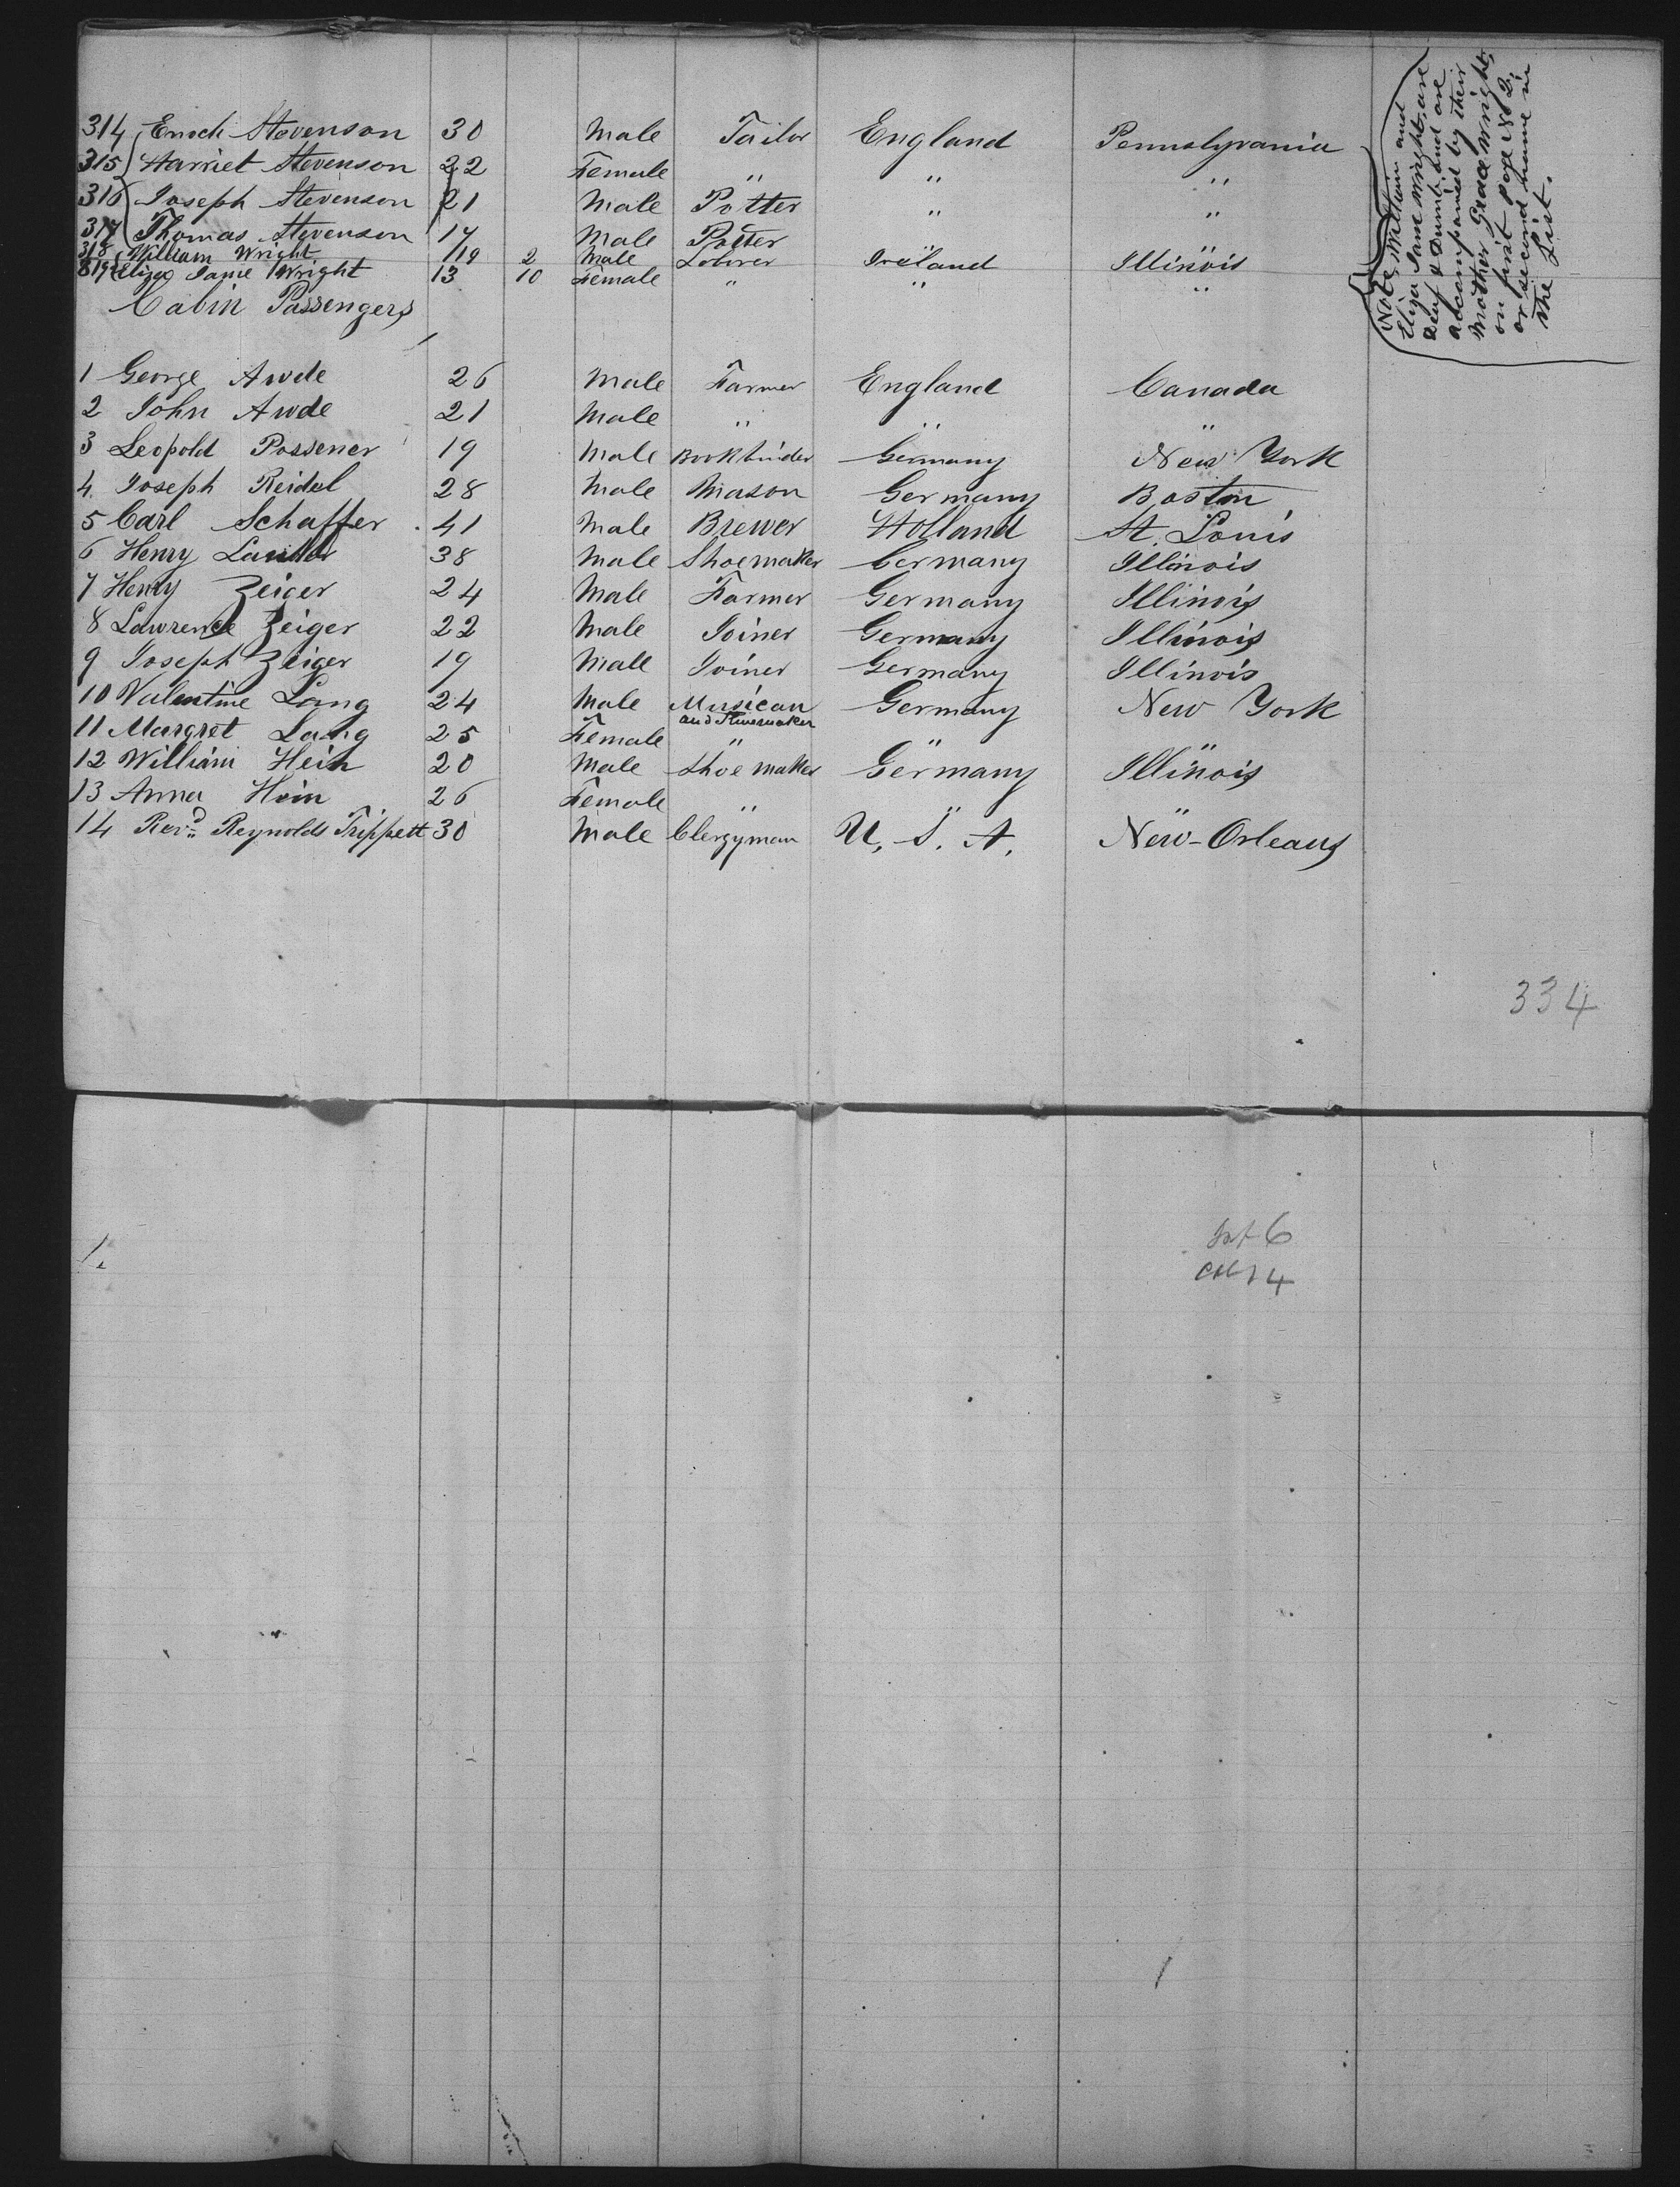 314 Enoch Stevenson 30 Male Tailor England Pennslyvania
315 Harriet Stevenson 22 Female " " "
316 Joseph Stevenson 21 Male Potter " "
317 Thomas Stevenson 17 Male Potter
318 William Wright 19 2 Male Laborer Ireland Illinois
319 Eliza Jane Wright 13 10 Female " " "
Cabin Passengers
1 George Awde 26 Male Farmer England Canada
2 John Awde 21 Male " " "
3 Leopold Possener 19 Male Bookbinder Germany New York
4. Joseph Reidel 28 Male Mason Germany Boston
5 Carl Schaffer 41 Male Brewer Holland St. Louis
6 Henry 38 Male Shoemaker Germany Illinois
7 Henry Zeiger 24 Male Farmer Germany Illinois
8 Lawrence Zeiger 22 Male Joiner Germany Illinois
9 Joseph Zeiger 19 Male Joiner Germany Illinois
10 Valentine Lang 24 Male Musican Germany New York
and Shoemaker
11 Margret Lang 25 Female " " "
12 William Hein 20 Male Shoemaker Germany Illinois
13 Anna Hein 26 Female " " "
14 Revd Reynolds Trippett 30 Male Clergyman U. S. A. New-Orleans
Note, William and
Eliza Jane Wright, are
Deaf & Dumb, and are
accompanied by their
Mother Grace Wright,
on first page No 2,
or second name in
the List.
334
1.
6
14